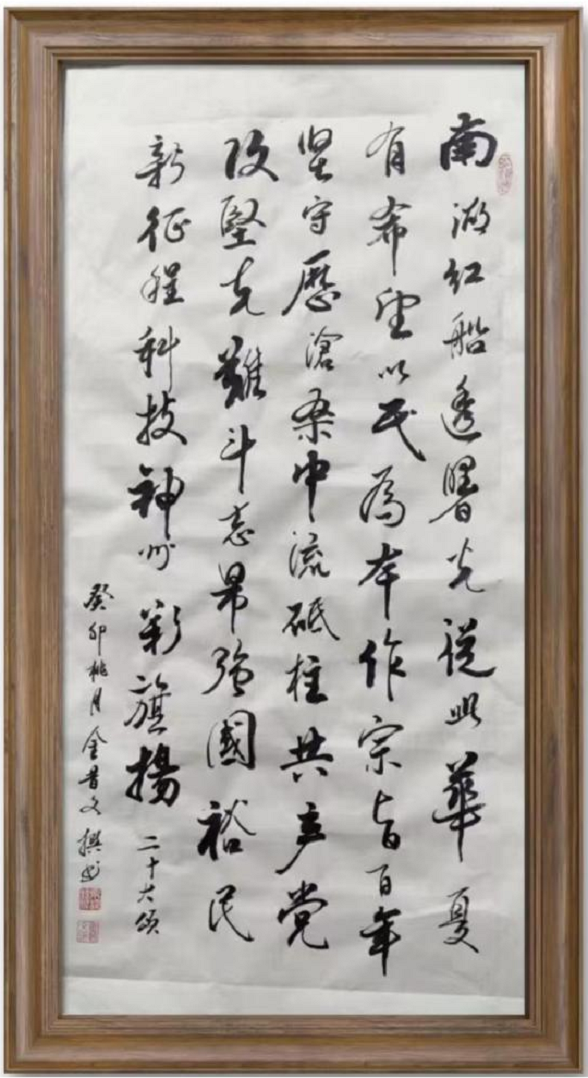 南湖红船透曙光从此華夏
有希望以民為本作宗旨百年
坚守歷滄桑中流砥柱共产党
攻堅克難斗志昂強國裕民
新征程科技神州彩旗揚
二十大颂
癸卯桃月金昔文撰书